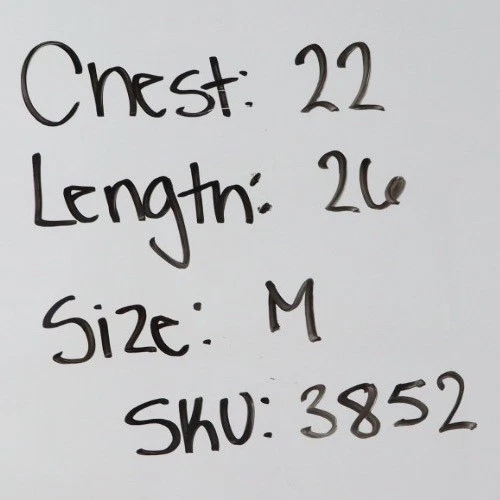 Chest: 22
Length: 26
Size: M
SKU: 3852